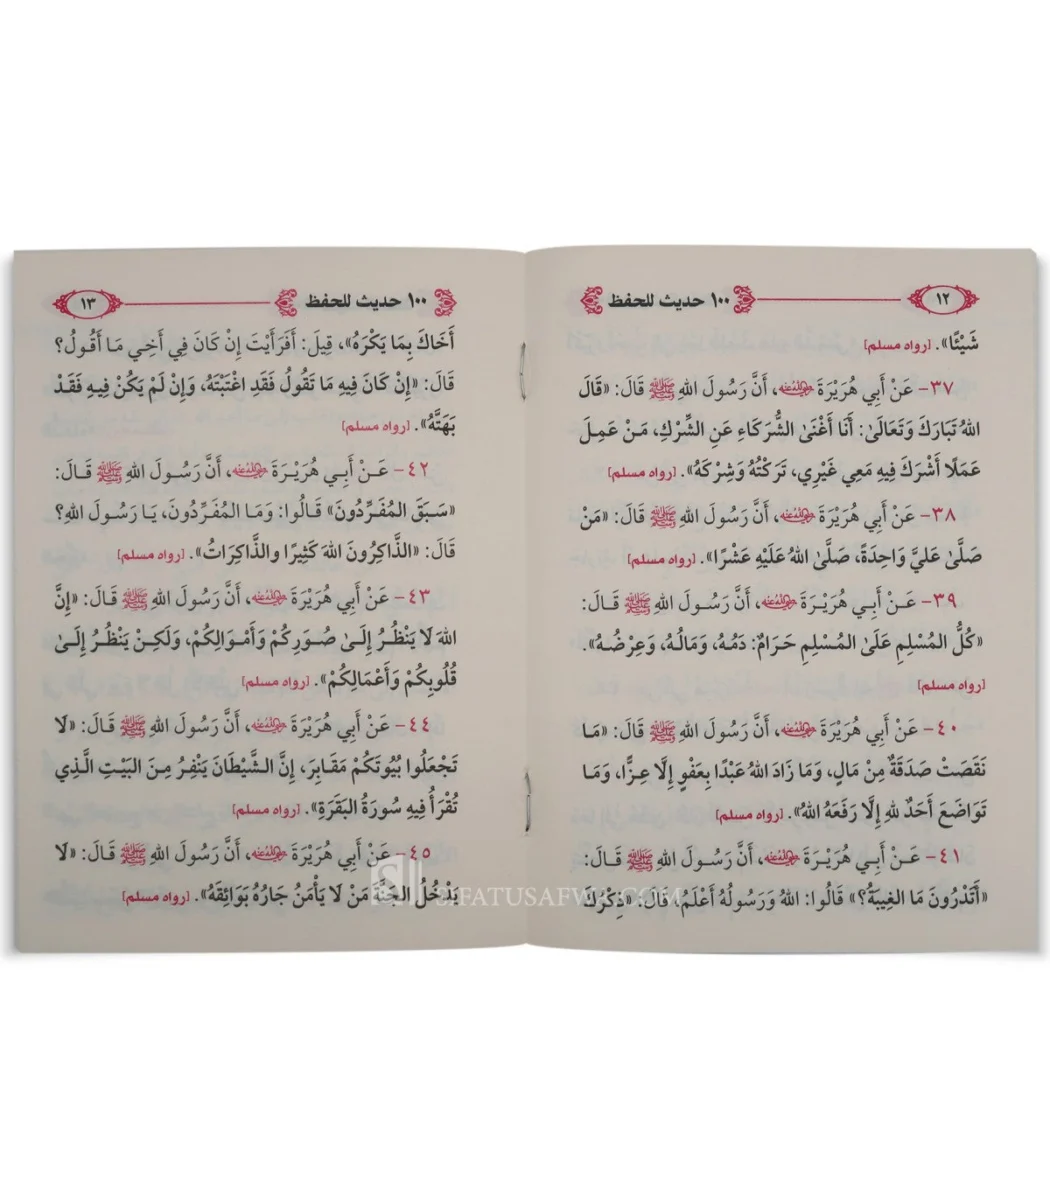 ١٠٠ حديث للحفظ
١٢
شَيْئًا». [رواه مسلم]
٣٧- عَنْ أَبِي هُرَيْرَةَ رضي الله عنه، أَنَّ رَسُولَ اللهِ ﷺ قَالَ: «قَالَ
اللهُ تَبَارَكَ وَتَعَالَىٰ: أَنَا أَغْنَىٰ الشُّرَكَاءِ عَنِ الشِّرْكِ، مَنْ عَمِلَ
عَمَلًا أَشْرَكَ فِيهِ مَعِي غَيْرِي، تَرَكْتُهُ وَشِرْكَهُ». [رواه مسلم]
٣٨- عَنْ أَبِي هُرَيْرَةَ رضي الله عنه، أَنَّ رَسُولَ اللهِ ﷺ قَالَ: «مَنْ
صَلَّىٰ عَلَيَّ وَاحِدَةً، صَلَّىٰ اللهُ عَلَيْهِ عَشْرًا». [رواه مسلم]
٣٩- عَنْ أَبِي هُرَيْرَةَ رضي الله عنه، أَنَّ رَسُولَ اللهِ ﷺ قَالَ:
«كُلُّ المُسْلِمِ عَلَىٰ المُسْلِمِ حَرَامٌ: دَمُهُ، وَمَالُهُ، وَعِرْضُهُ».
[رواه مسلم]
٤٠- عَنْ أَبِي هُرَيْرَةَ رضي الله عنه، أَنَّ رَسُولَ اللهِ ﷺ قَالَ: «مَا
نَقَصَتْ صَدَقَةٌ مِنْ مَالٍ، وَمَا زَادَ اللهُ عَبْدًا بِعَفْوٍ إِلَّا عِزًّا، وَمَا
تَوَاضَعَ أَحَدٌ لِلهِ إِلَّا رَفَعَهُ اللهُ». [رواه مسلم]
٤١- عَنْ أَبِي هُرَيْرَةَ رضي الله عنه، أَنَّ رَسُولَ اللهِ ﷺ قَالَ:
«أَتَدْرُونَ مَا الغِيبَةُ؟» قَالُوا: اللهُ وَرَسُولُهُ أَعْلَمُ، قَالَ: «ذِكْرُكَ
١٠٠ حديث للحفظ
١٣
أَخَاكَ بِمَا يَكْرَهُ»، قِيلَ: أَفَرَأَيْتَ إِنْ كَانَ فِي أَخِي مَا أَقُولُ؟
قَالَ: «إِنْ كَانَ فِيهِ مَا تَقُولُ فَقَدِ اغْتَبْتَهُ، وَإِنْ لَمْ يَكُنْ فِيهِ فَقَدْ
بَهَتَّهُ». [رواه مسلم]
٤٢- عَنْ أَبِي هُرَيْرَةَ رضي الله عنه، أَنَّ رَسُولَ اللهِ ﷺ قَالَ:
«سَبَقَ المُفَرِّدُونَ» قَالُوا: وَمَا المُفَرِّدُونَ، يَا رَسُولَ اللهِ؟
قَالَ: «الذَّاكِرُونَ اللهَ كَثِيرًا والذَّاكِرَاتُ». [رواه مسلم]
٤٣- عَنْ أَبِي هُرَيْرَةَ رضي الله عنه، أَنَّ رَسُولَ اللهِ ﷺ قَالَ: «إِنَّ
اللهَ لَا يَنْظُرُ إِلَىٰ صُوَرِكُمْ وَأَمْوَالِكُمْ، وَلَكِنْ يَنْظُرُ إِلَىٰ
قُلُوبِكُمْ وَأَعْمَالِكُمْ». [رواه مسلم]
٤٤- عَنْ أَبِي هُرَيْرَةَ رضي الله عنه، أَنَّ رَسُولَ اللهِ ﷺ قَالَ: «لَا
تَجْعَلُوا بُيُوتَكُمْ مَقَابِرَ، إِنَّ الشَّيْطَانَ يَنْفِرُ مِنَ البَيْتِ الَّذِي
تُقْرَأُ فِيهِ سُورَةُ البَقَرَةِ». [رواه مسلم]
٤٥- عَنْ أَبِي هُرَيْرَةَ رضي الله عنه، أَنَّ رَسُولَ اللهِ ﷺ قَالَ: «لَا
يَدْخُلُ الجَنَّةَ مَنْ لَا يَأْمَنُ جَارُهُ بَوَائِقَهُ». [رواه مسلم]
SIFATUSAFWA.COM